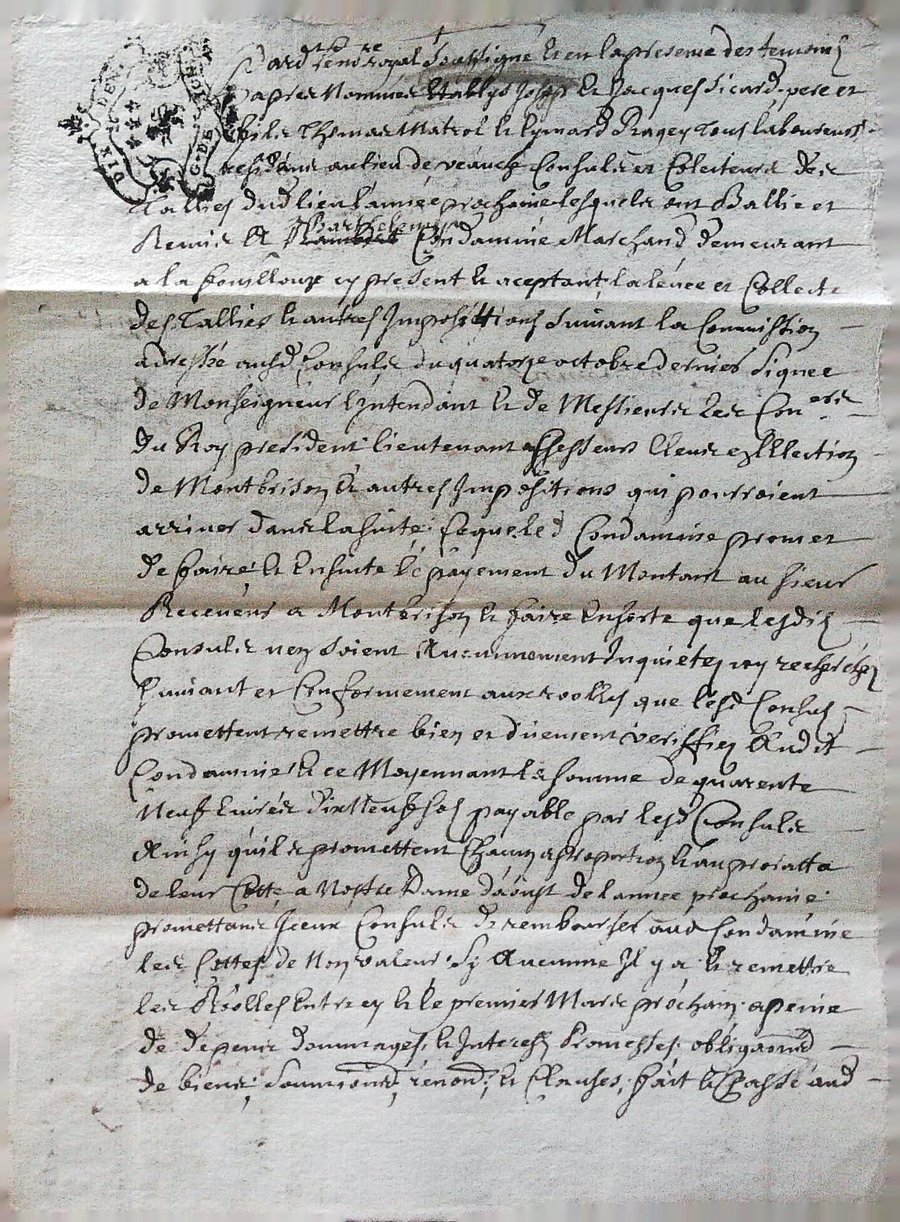 DIX DEN.
G. DE LION
Pard. le no.re royal Soussigné et en la presence des temoins
apres Nommés Establys Joseph et Jacques Sicard pere et
fils Thomas Matrol et Eymard Ragey Tous laboureurs
residans au lieu de veauche Consuls et Colecteurs des
Tallies dud lieu l'année prochaine lesquels ont Ballie et
Remis A Barthelemy Condamine Marchand demeurant
a la fouillouze cy present et aceptant la levée et Collecte
des Tallies et autres Impositions Suivant la Commission
adressée ausd Consuls du quatorze octobre dernier Signee
de Monseigneur l'Intendant et de Messieurs Les Con.ers
du Roy president lieutenant assesseurs Eleus en l'Election
de Montbrison et autres Impositions qui pourroient
arriver dans la suite. Ce que led Condamine promet
de faire et Ensuite le payement du Montant au sieur
Receveur a Montbrison et faire Ensorte que lesdits
Consuls nen Soient Aucunnement Inquietez ny recherchez
Suivant et Conformement aux rolles que lesd Consuls
promettent remettre bien et duement veriffiez Audit
Condamine et ce Moyennant la somme de quarente
Neuf Livres dix Neuf sols payable par lesd Consuls
Ainsy quils promettent Chacun a proportion et au prorata
de leur Cotte a Nostre Dame d'aoust de l'annee prochaine
promettans Iceux Consuls de rembourser aud Condamine
les Cottes de Non valeur Sy Aucunne Il y a et remettre
les Rolles Entre cy et le premier Mars prochain a peine
de depens dommages et Interests Promesses obliga.ons
de biens, Soumissions, renon.s et Clauses, fait et Passé aud